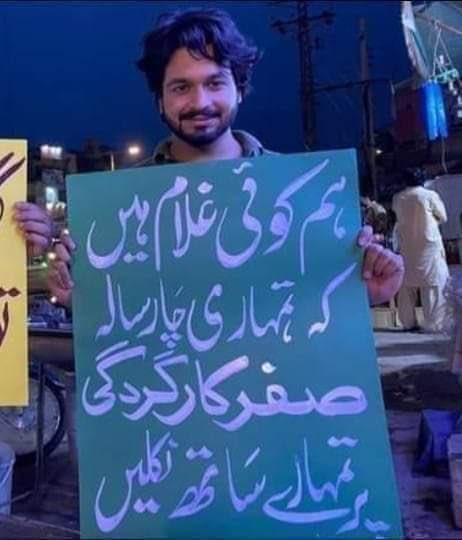 ہم کوئی غلام ہیں
کہ تمہاری چار سالہ
صفر کارکردگی
پر تمہارے ساتھ نکلیں